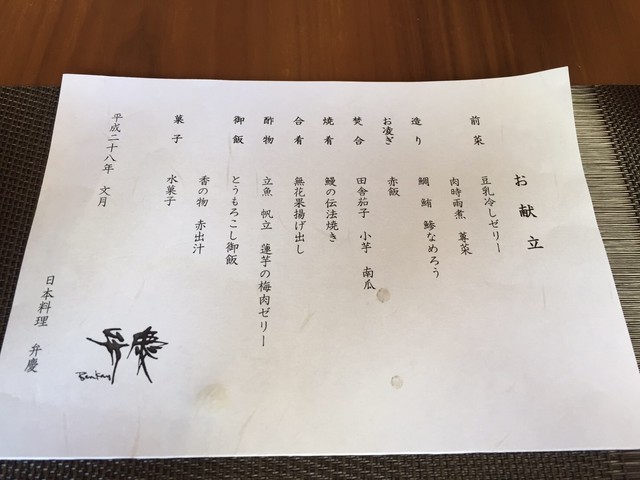 お献立
前菜 豆乳冷しゼリー
肉時雨煮 蓴菜
造り 鯛 鮪 鯵なめろう
お凌ぎ 赤飯
焚合 田舎茄子 小芋 南瓜
焼肴 鰻の伝法焼き
合肴 無花果揚げ出し
酢物 立魚 帆立 蓮芋の梅肉ゼリー
御飯 とうもろこし御飯
香の物 赤出汁
菓子 水菓子
平成二十八年 文月
日本料理 弁慶
弁慶
Benkay